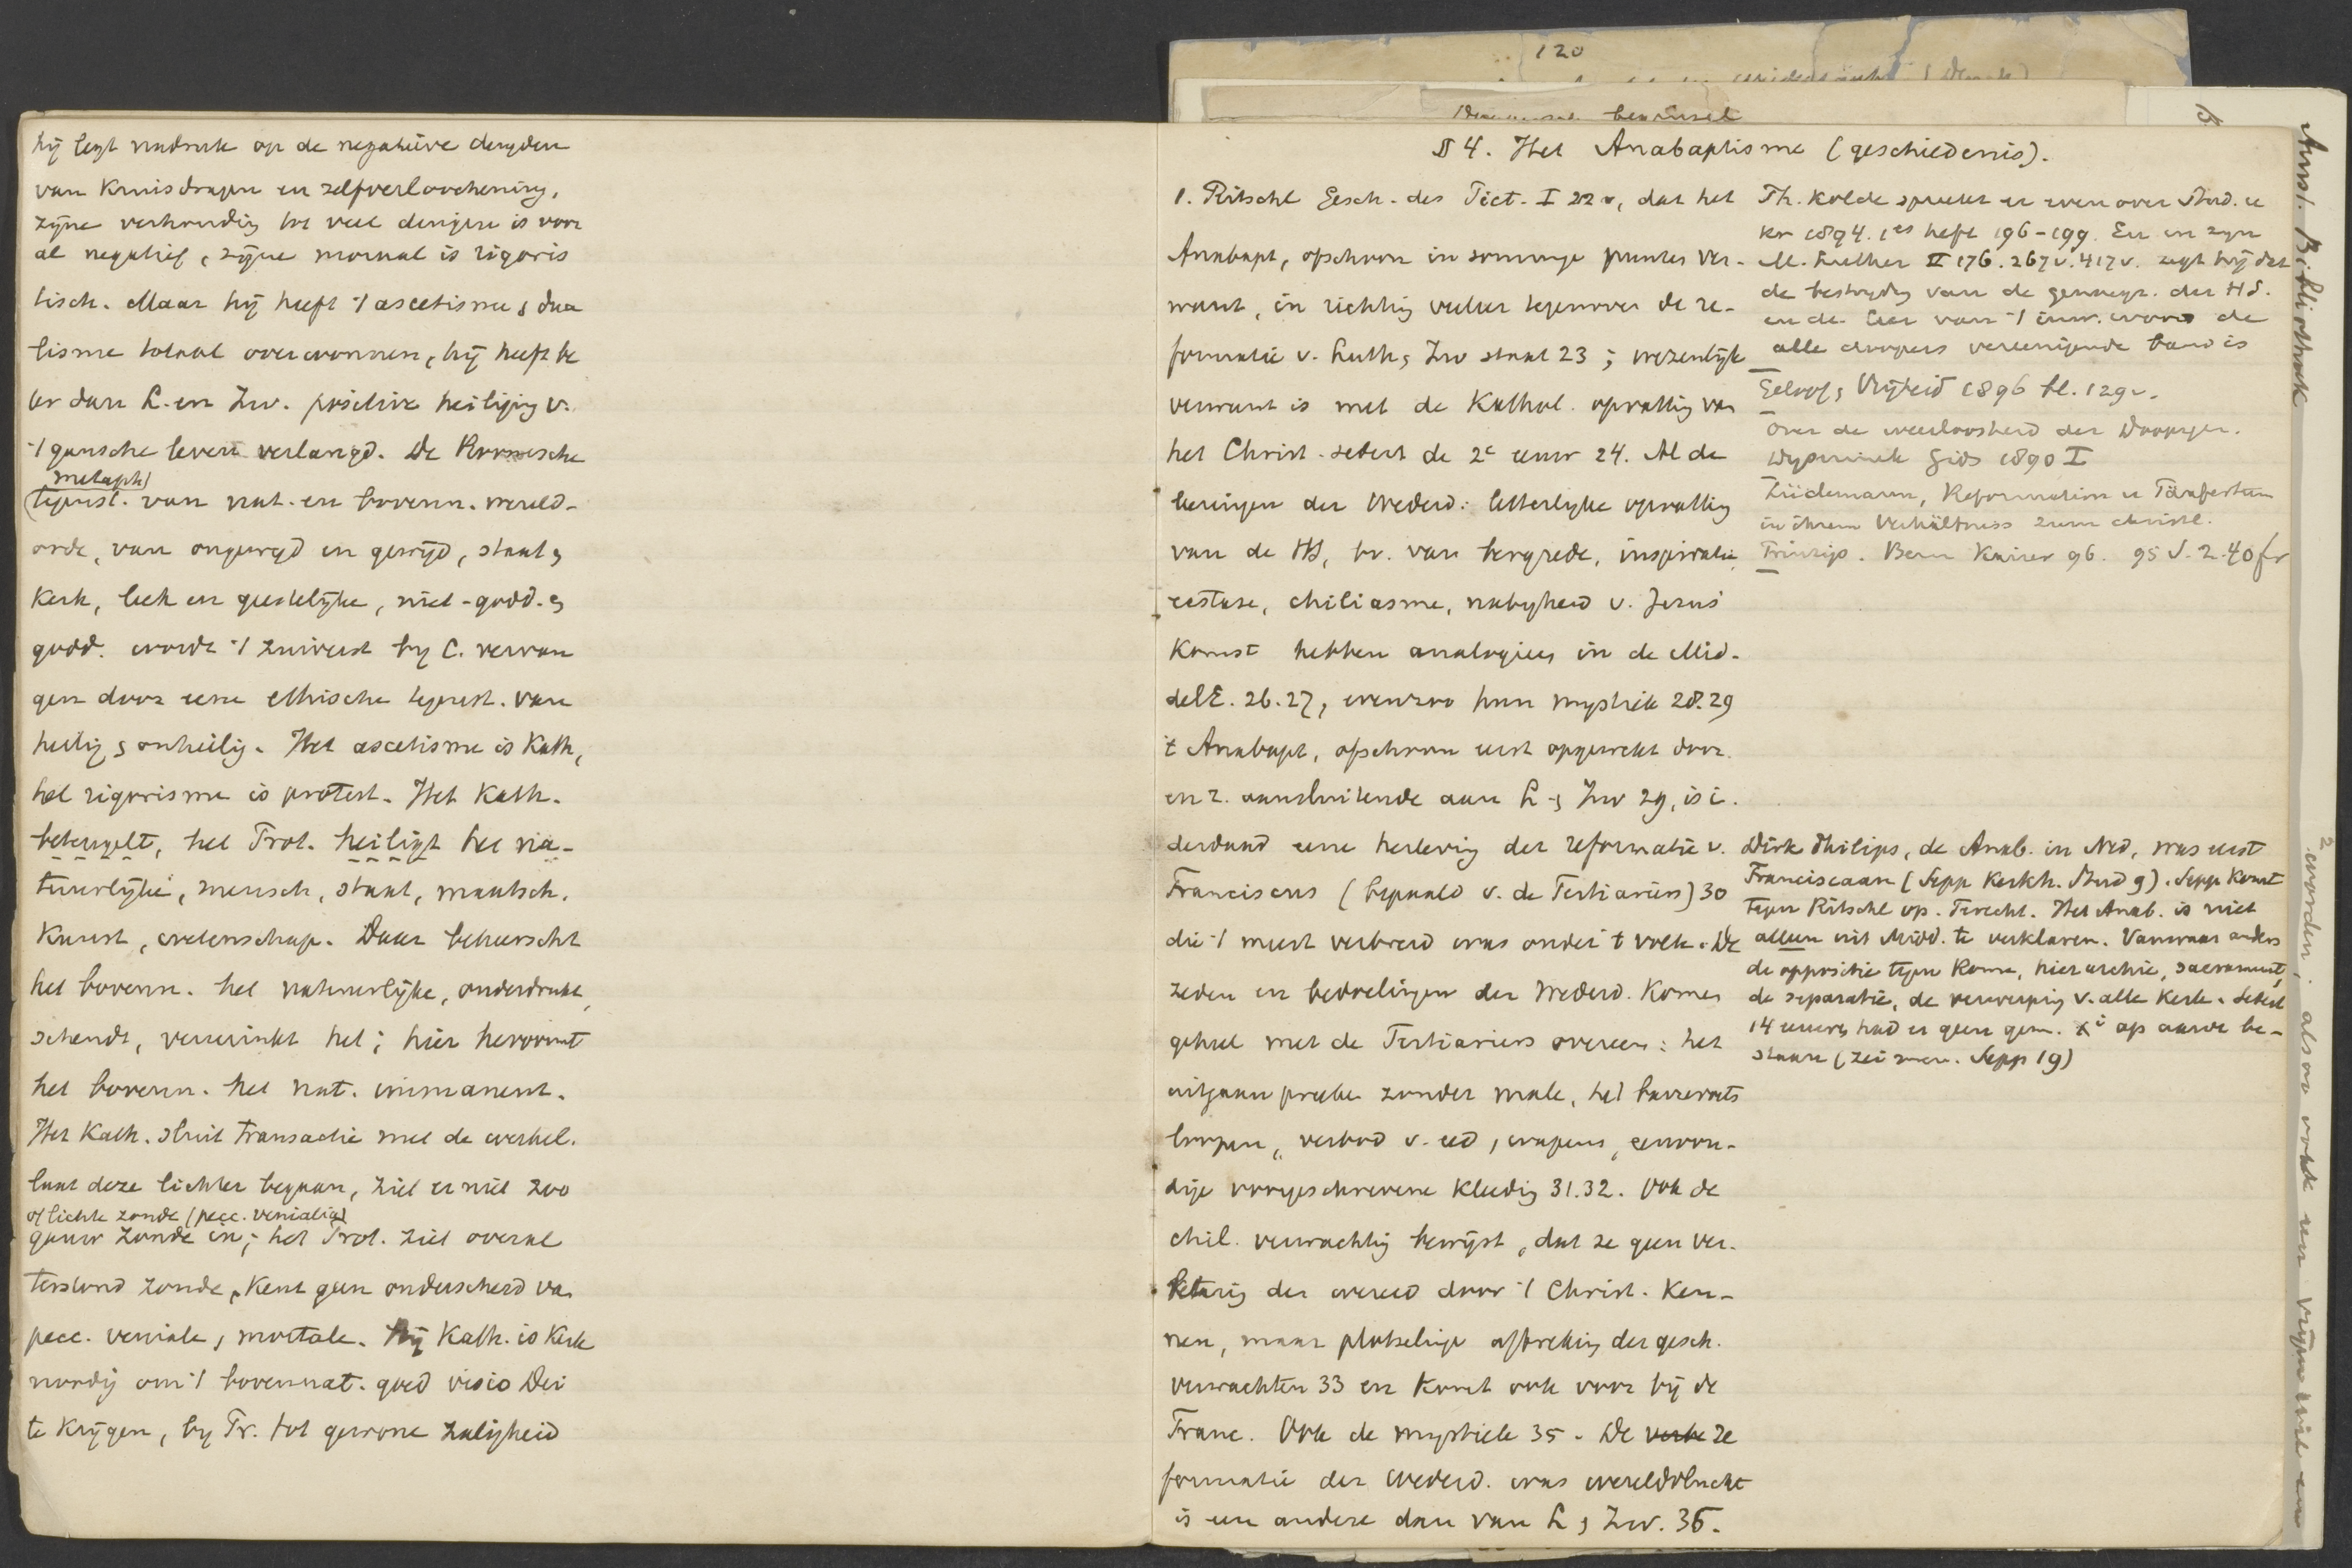 hij legt nadruk op de negatieve deugden
van kruisdragen en zelfverloochening,
zijne verhouding tot veel dingen is voor
al negatief, zijne moraal is rigoris
tisch. Maar hij heeft 't ascetisme & dua
lisme totaal overwonnen, hij heeft be
ter dan L. en Zw. positive heiliging v.
't gansche leven verlangd. De Roomsche
metaph)
(tegenst. van nat. en bovenn. wereld-
orde, van ongewijd en gewijd, staat &
Kerk, leek en geestelijke, niet-godd. &
godd. wordt 't zuiverst bij C. vervan
gen door eene ethische tegenst. van
heilig & onheilig. Het ascetisme is Kath,
het rigorisme is protest. Het Kath.
beteugelt, het Prot. heiligt het na-
tuurlijke, mensch, staat, maatsch.
Kunst, wetenschap. Daar beheerscht
het bovenn. het natuurlijke, onderdrukt,
schendt, verminkt het; hier hervormt
het bovenn. het nat. immanent.
Het Kath. sluit transactie met de werkel.
laat deze lichter begaan, ziet er niet zoo
of lichte zonde (pecc. venialia)
gauw zonde in; het Prot. ziet overal
terstond zonde, Kent geen onderscheid van
pecc. veniale & mortale. Bij Kath. is Kerk
noodig om 't bovennat. goed visio Dei
te krijgen, by Pr. tot gewone zaligheid
120
§ 4. Het Anabaptisme (geschiedenis).
1. Ritschl Gesch. des Piet. I 22 v, dat het
Anabapt, ofschoon in sommige punten ver-
want, in richting veeleer tegenover de re-
formatie v. Luth & Zw staat 23; wezenlijk
verwant is met de Kathol. opvatting van
het Christ. sedert de 2e eeuw 24. Al de
leeringen der Wederd: letterlijke opvatting
van de HS, bv. van bergrede, inspiratie,
ecstase, chiliasme, nabyheid v. Jezus'
Komst hebben analogieen in de Mid-
delE. 26.27, evenzoo hun mystiek 28.29
't Anabapt, ofschoon eerst opgewekt door
en z. aansluitende aan L & Zw 29, is i.
derdaad eene herleving der reformatie v.
Franciscus (bepaald v. de Tertiariers) 30
die 't meest verbreid was onder 't volk. De
zeden en bedoelingen der Wederd. komen
geheel met de Tertiariers overeen: het
uitgaan prediken zonder male, het barrevoets
loopen, verbod v. eed, wapens, eenvou-
dige voorgeschrevene kleeding 31.32. Ook de
chil. verwachting bewijst, dat ze geen ver-
betering der wereld door 't Christ. ken-
nen, maar plotselinge afbreking der gesch.
verwachten 33 en komt ook voor bij de
Franc. Ook de mystiek 35. De re
formatie der Wederd. was wereldvlucht
is een andere dan van L & Zw. 36.
Th. Kolde spreekt er even over Stud. u
Kr 1894. 1es heft 196-199. En in zyn
M. Luther II 176. 267v. 417v. zegt hij dat
de bestrijding van de der HS.
en de leer van 't inw. woord de
alle doopers vereenigende band is
Geloof & Vrijheid 1896 bl. 129v.
Over de weerloosheid der Doopsgez.
Gids 1890 I
Lüdemann, Reformation u Täufertum
in ihrem Verhältniss zum christl.
Prinzip. Bern Kaiser 96. 95 S. 2.40 fr
Dirk Philips, de Anab. in Ned, was eerst
Franciscaan (Sepp Kerkh. Stud 9). Sepp komt
tegen Ritschl op. Terecht. Het Anab. is niet
alleen uit Midd. te verklaren. Vanwaar anders
de oppositie tegen Rome, hierarchie, sacrament,
de separatie, de verwerping v. alle Kerk. Sedert
14 eeuwen had er geen gem. Xi op aarde be-
staan (zei men. Sepp 19)
Amst. Bibliotheek
2 worden; alsov ook een vrijen wil en